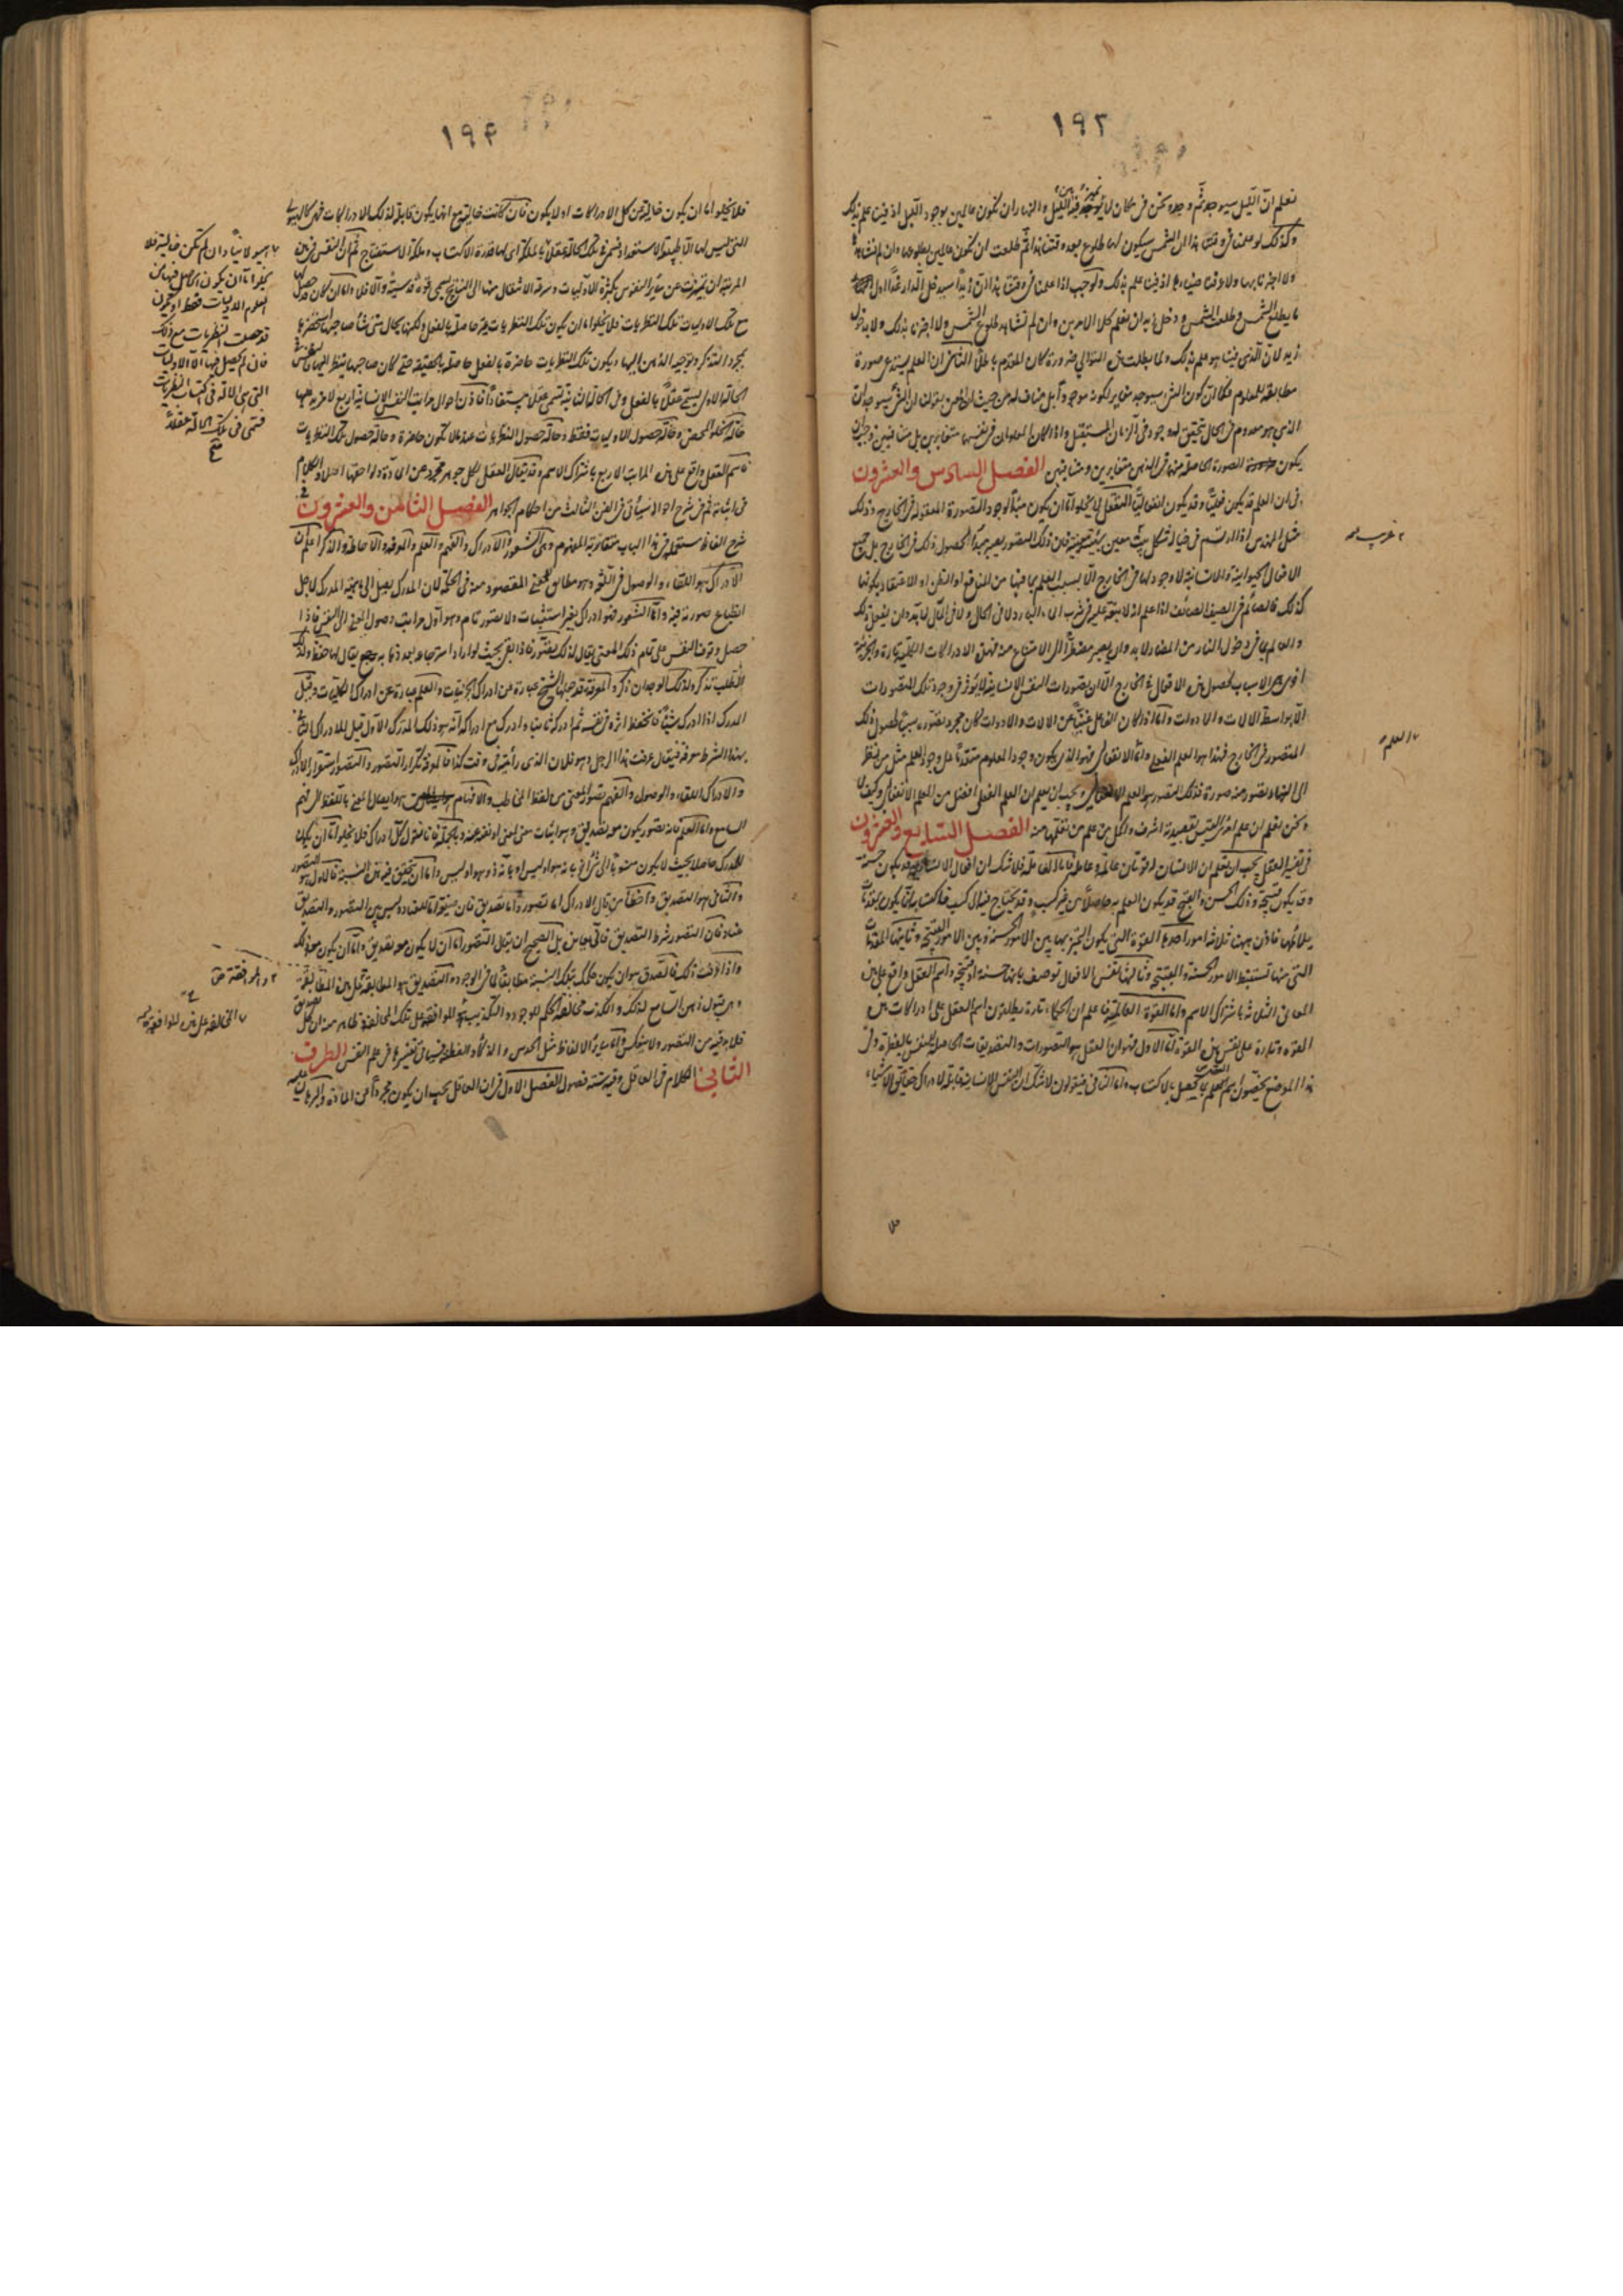 ١٩٢
نعلم ان الليل سيوجد ثم وجد ونحن فى مكان لا نميز فيه بين الليل والنهار ان نكون عالمين بوجود الليل اذ فينا علم بذلك
وكذلك لو علمنا فى وقتنا هذا ان الشمس سيكون لها طلوع بعد وقتنا هذا ثم طلعت ان نكون عالمين بطلوعها وان لم نشاهد
ولا اخبرنا بها ولا عرفنا ضياءها اذ فينا علم بذلك ولوجب اذا علمنا فى وقتنا هذا ان زيدا سيدخل الدار غدا اول
ما يطلع الشمس وطلعت الشمس ودخل زيد ان نعلم كلا الامرين وان لم نشاهد طلوع الشمس ولا اخبرنا بذلك ولا بدخول
زيد لان الذى فينا هو علم بذلك ولما بطلت هذه التوالى ضرورة كان المقدم باطلا الثانى ان العلم يستدعى صورة
مطابقة للمعلوم فكما ان كون الشئ سيوجد مغاير لكونه موجودا بل مناف له من حيث
الذى هو معدوم فى الحال تحقق له وجود فى الزمان المستقبل واذا كان المعلومان فى نفسهما متغايرين بل متنافيين وجب ان
يكون الصورة الحاصلة منهما فى الذهن متغايرين ومتنافيين الفصل السادس والعشرون
فى ان العلم قد يكون فعليا وقد يكون انفعاليا التعقل لا يخلو اما ان يكون مبدأ لوجود الصورة المعقولة فى الخارج وذلك
مثل المهندس اذا ارتسم فى خياله شكل بيت معين بهيئة معينة فان ذلك التصور يصير مبدأ لحصول ذلك فى الخارج بل جميع
الافعال الحيوانية والانسانية لا وجود لها فى الخارج الا بسبب العلم بما فيها من المنافع او الظن او الاعتقاد بكونها
كذلك فالصائم فى الصيف الصائف اذا علم انه لا عقوبة عليه فى شرب الماء البارد لا فى الحال ولا فى المآل لا بد وان يفعل ذلك
والعالم بما فى دخول النار من المضار لا بد وان يصير مضطرا الى الامتناع منه فهذه الادراكات الكلية تارة والجزئية
اخرى هى الاسباب لحصول هذه الافعال فى الخارج الا ان تصورات النفس الانسانية لا تؤثر فى وجود تلك المتصورات
الا بواسطة الآلات والادوات واما اذا كان الفاعل غنيا عن الآلات والادوات كان مجرد تصوره سببا لحصول ذلك
المتصور فى الخارج فهذا هو العلم الفعلى واما الانفعالى فهو الذى يكون وجود المعلوم متقدما على وجود العلم مثل من ينظر
الى السماء ويتصور منه صورة فذلك المتصور هو العلم الانفعالى ويجب ان يعلم ان العلم الفعلى افضل من العلم الانفعالى وكيف لا
ونحن نعلم ان علم امرئ القيس بقصيدته اشرف واكمل من علم من تعلمها منه الفصل السابع والعشرون
فى تفسير العقل يجب ان نعلم ان الانسان له قوتان عالمة وعاملة فاما العاملة فلا شك ان افعال الانسان قد يكون حسنة
وقد يكون قبيحة وذلك الحسن والقبح قد يكون العلم به حاصلا من غير كسب وقد يحتاج فيه الى كسب فاكتسابه انما يكون بمقدمات
يلائمها فاذن يهنا ثلاثة امور احدها القوة التى يكون التميز بها بين الامور الحسنة وبين الامور القبيحة وثانيها المقدمات
التى منها تستنبط الامور الحسنة والقبيحة وثالثها نفس الافعال توصف بانها حسنة او قبيحة واسم العقل واقع على هذه
المعانى الثلثة باشتراك الاسم واما القوة العالمة فاعلم ان الحكماء تارة يطلقون اسم العقل على ادراكات هذه
القوة وتارة على نفس هذه القوة اما الاول فهو ان العقل هو التصورات والتصديقات الحاصلة للنفس بالفطرة وفى
هذا الموضع يخصون اسم العلم بما يحصل بالاكتساب واما الثانى فيقولون لا شك ان النفس الانسانية قابلة لادراك حقائق الاشياء
العلم
١٩۴
فلا يخلو اما ان يكون خالية عن كل الادراكات او لا يكون فان كانت خالية مع انها يكون قابلة لتلك الادراكات فهى كالهيولى
التى ليس لها الا طبيعة الاستعداد فتسمى فى تلك الحالة عقلا بالملكة اى لها قدرة الاكتساب وملكة الاستنتاج ثم ان النفس فى هذه
المرتبة ان تميزت عن سائر النفوس بكثرة الاوليات وسرعة الانتقال منها الى النتائج سمى قوة قدسية والا فلا واما ان كان قد حصل لها
مع تلك الاوليات تلك النظريات فلا يخلو اما ان يكون تلك النظريات غير حاصلة بالفعل ولكنها بحال متى شاء صاحبها استحضرها
بمجرد التذكر وتوجيه الذهن اليها ويكون تلك النظريات حاضرة بالفعل حاصلة بالحقيقة حتى كان صاحبها ينظر اليها فالنفس فى
الحالة الاولى تسمى عقلا بالفعل وفى الحالة الثانية تسمى عقلا مستفادا فاذن احوال مراتب النفس الانسانية اربع لا مزيد عليها
حالة الخلو المحض وحالة حصول الاوليات فقط وحالة حصول النظريات عندما لا تكون حاضرة وحالة حصول تلك النظريات
فاسم العقل واقع على هذه المراتب الاربع باشتراك الاسم وقد يقال العقل لكل جوهر مجرد عن المادة ولواحقها اصلا والكلام
فى اثباته ثم فى شرح احواله سيأتى فى الفن الثالث من احكام الجواهر الفصل الثامن والعشرون فى
شرح الفاظ مستعملة فى هذا الباب متقاربة المفهوم وهى الشعور والادراك والفهم والعلم والمعرفة والاحاطة والذكر اعلم ان
الادراك هو اللقاء والوصول فى اللغة وهو مطابق للمعنى المقصود منه فى الحكمة لان المدرك يصل الى ماهية المدرك لاجل
انطباع صورته فيه واما الشعور فهو ادراك بغير استثبات ولا تصور تام وهو اول مراتب وصول المعنى الى النفس فاذا
حصل وقوف النفس على تمام ذلك المعنى يقال لذلك تصور فاذا بقى بحيث لو اراد استرجاعه بعد ذهابه يرجع يقال لها حفظ ولذلك
الطلب تذكر ولذلك الوجدان ذكر والمعرفة قد جعلها الشيخ عبارة عن ادراك الجزئيات والعلم عبارة عن ادراك الكليات وقيل
المدرك اذا ادرك شيئا فانحفظ اثره فى نفسه ثم ادركه ثانيا وادرك مع ادراكه انه هو ذلك المدرك الاول قيل للادراك الثانى
بهذا الشرط معرفة فيقال عرفت هذا الرجل وهو فلان الذى رأيته فى وقت كذا فالمعرفة تكرار التصور والتصور استقرار الادراك
والادراك اللقاء والوصول والفهم تصور المعنى من لفظ المخاطب والافهام هو ايصال المعنى باللفظ الى فهم
السامع واما العلم فانه تصور يكون معه تصديق وهو اثبات معنى لمعنى او نفيه عنه وبالجملة فانا نقول كل ادراك فلا يخلو اما ان يكون
المدرك حاصلا بحيث لا يكون منسوبا الى شئ آخر بانه هو او ليس او بانه ذو هو او ليس واما ان يتحقق فيه هذه النسبة فالاول هو التصور
والثانى هو التصديق واخطأ من قال الادراك اما تصور واما تصديق فان صيغة اما للعناد وليس بين التصور والتصديق
عناد فان التصور شرط التصديق فانى يعاند بل الصحيح ان يقال التصور اما ان لا يكون معه تصديق واما ان يكون معه ذلك
واذا عرفت ذلك فالصدق هو ان يكون حكمك بتلك النسبة مطابقا لما فى الوجود والتصديق هو المطابقة مثل هذه المطابقة
وهى قبول ذهن السامع لذلك والكذب مخالفة الحكم للوجود والتكذيب هو الموافقة على تلك المخالفة فظاهر منه ان كل تصديق
فلا بد فيه من التصور ولا ينعكس واما سائر الالفاظ مثل الحدس والذكاء والفطنة فسيأتى تفسيرها فى علم النفس الطرف
الثانى الكلام فى العاقل وفيه ستة فصول الفصل الاول فى ان العاقل يجب ان يكون مجردا عن المادة واكثر ما
هيولانيا وان لم تكن خالية فلا
يخلو اما ان يكون الحاصل فيها من
العلوم الاوليات فقط او يكون
قد حصلت النظريات مع ذلك
فان لم يحصل فيها الا الاوليات
التى هى الالة فى اكتساب النظريات
فتسمى فى تلك الحالة عقلا